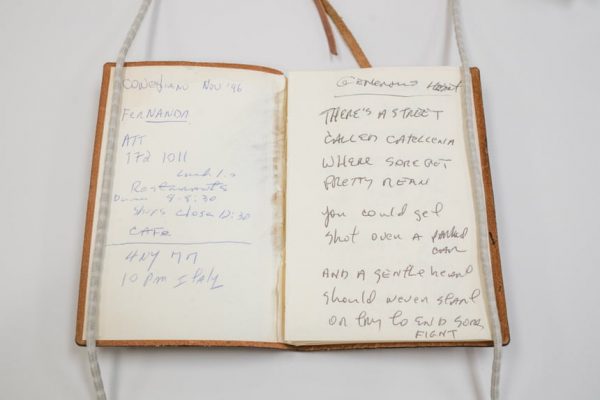 CONEGLIANO Nov '96
FERNANDA
ATT
172 1011
Lunch 1:
Restaurants
Dinner 8-8:30
Shops close 12:30
CAFE
4 NY
10 pm Italy
GENEROUS HEART
THERE'S A STREET
CALLED CATELLENA
WHERE SOME GET
PRETTY MEAN
You could get
shot over A PARKED
CAR
AND A gentle heart
should never start
or try to END SOME
FIGHT